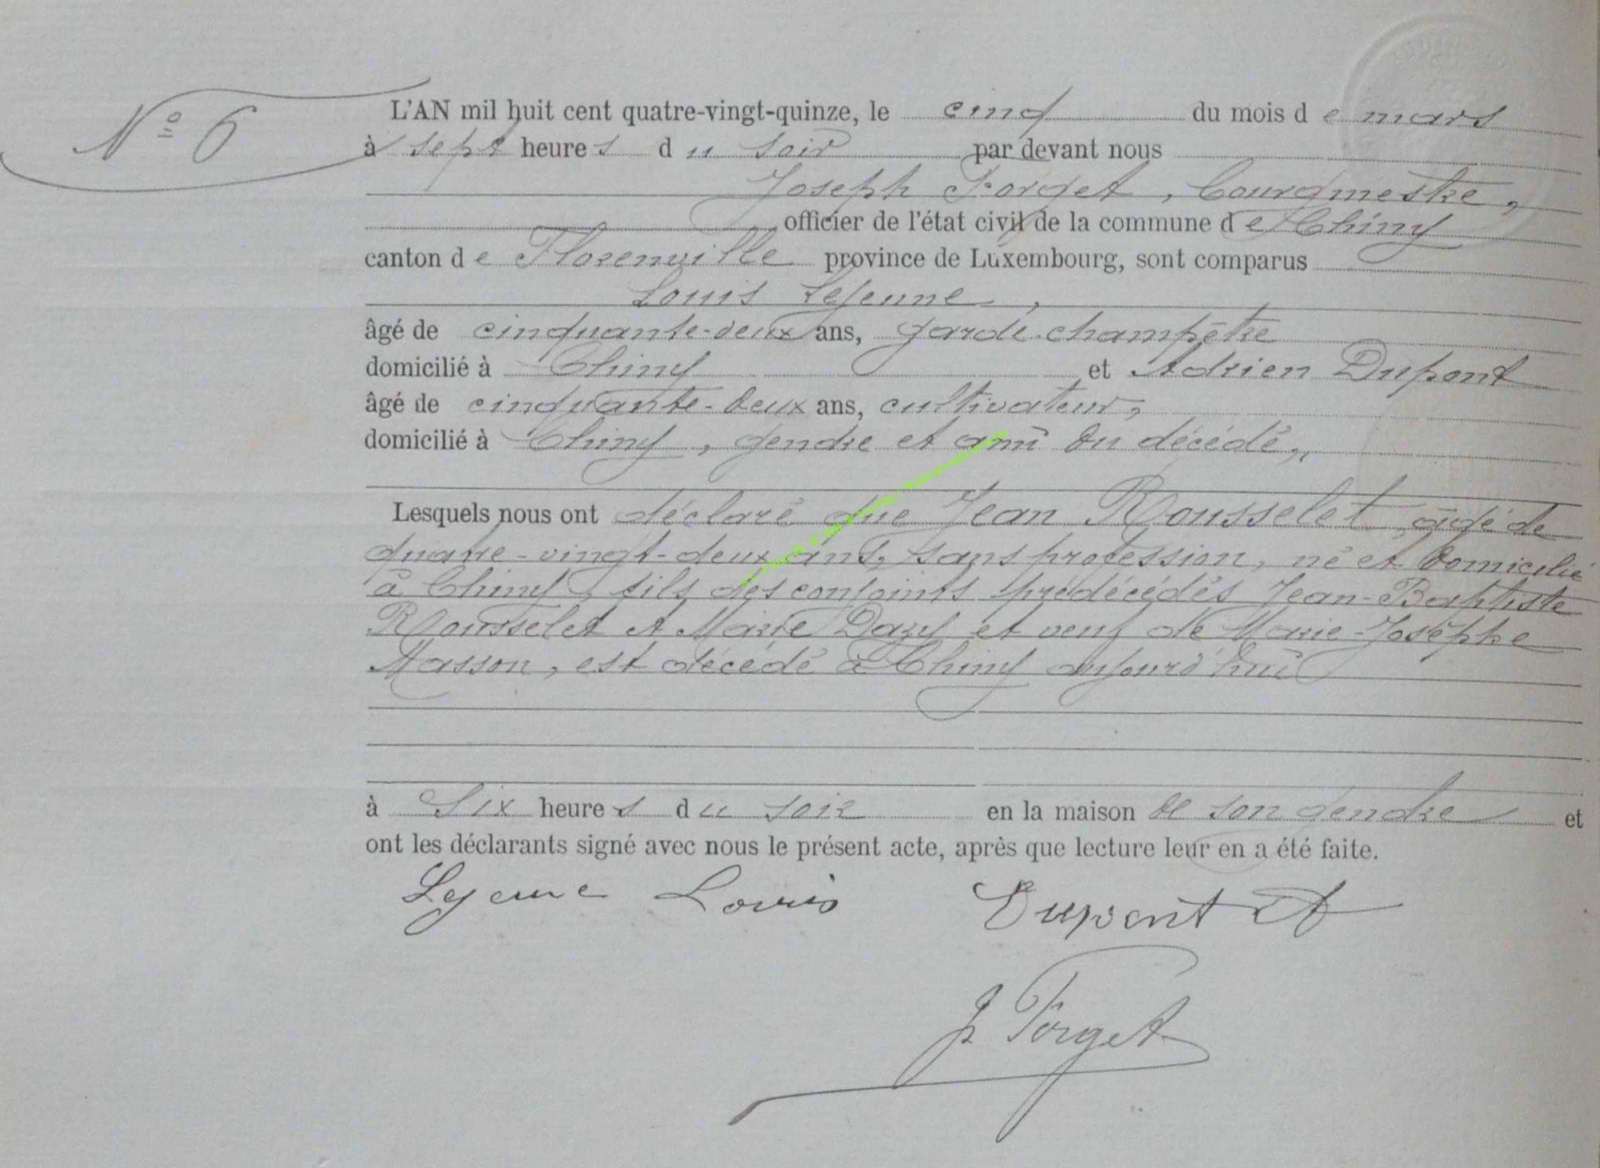 N° 6
L'AN mil huit cent quatre-vingt-quinze, le cinq du mois de mars
à sept heures du soir par devant nous
Joseph Forget, Bourgmestre,
officier de l'état civil de la commune de Chiny
canton de Florenville province de Luxembourg, sont comparus
Louis Lejeune,
âgé de cinquante-deux ans, garde-champêtre
domicilié à Chiny et Adrien Dupont
âgé de cinquante-deux ans, cultivateur,
domicilié à Chiny, gendre et ami du décédé,
Lesquels nous ont déclaré que Jean Rousselet, âgé de
quatre-vingt-deux ans, sans profession, né et domicilié
à Chiny, fils des conjoints prédécédés Jean-Baptiste
Rousselet et Marie Dazy et veuf de Marie-Josèphe
Masson, est décédé à Chiny aujourd'hui
à six heures du soir en la maison de son gendre et
ont les déclarants signé avec nous le présent acte, après que lecture leur en a été faite.
Lejeune Louis Dupont A
J Forget